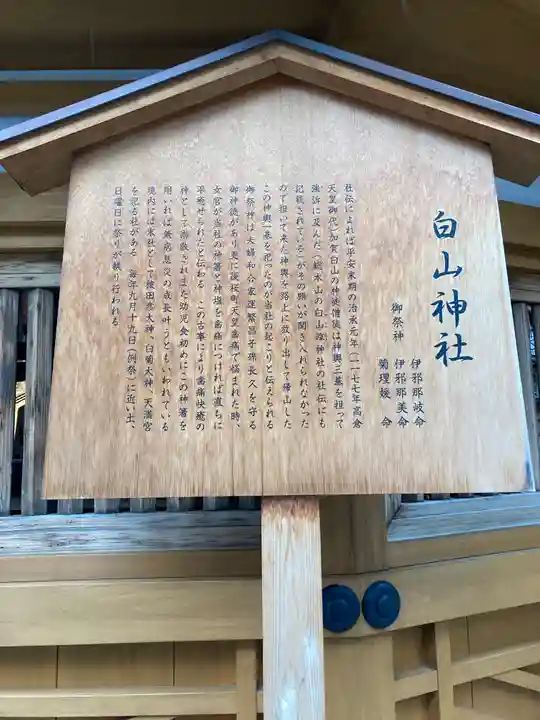 白山神社
御祭神
伊邪那岐命
伊邪那美命
菊理媛 命
社伝によれば平安末期の治承元年(一一七七年高倉
天皇御代)加賀白山の神徒僧徒は神輿三基を担って
強訴に及んだ(総本山の白山比咩神社の社伝にも
記載されている)がその願いが聞き入れられなかった
ので担いて来た神輿を路上に放り出して帰山した
この神輿一基を祀ったのが当社の起こりと伝えられる
御祭神は夫婦和合家運繁昌子孫長久を守る
御神徳があり更に後桜町天皇歯痛で悩まれた時、
女官が当社の神箸と神塩を歯痛につければ直ちに
平癒せられたと伝わる この古事により歯痛快癒の
神として崇敬されまた幼児食初めにこの神箸を
用いれば無病息災の成長叶うともいわれている
境内には末社として猿田彦大神、白菊大神、天満宮
を祀る社がある 毎年九月十九日(例祭)に近い土、
日曜日に祭りが執り行われる